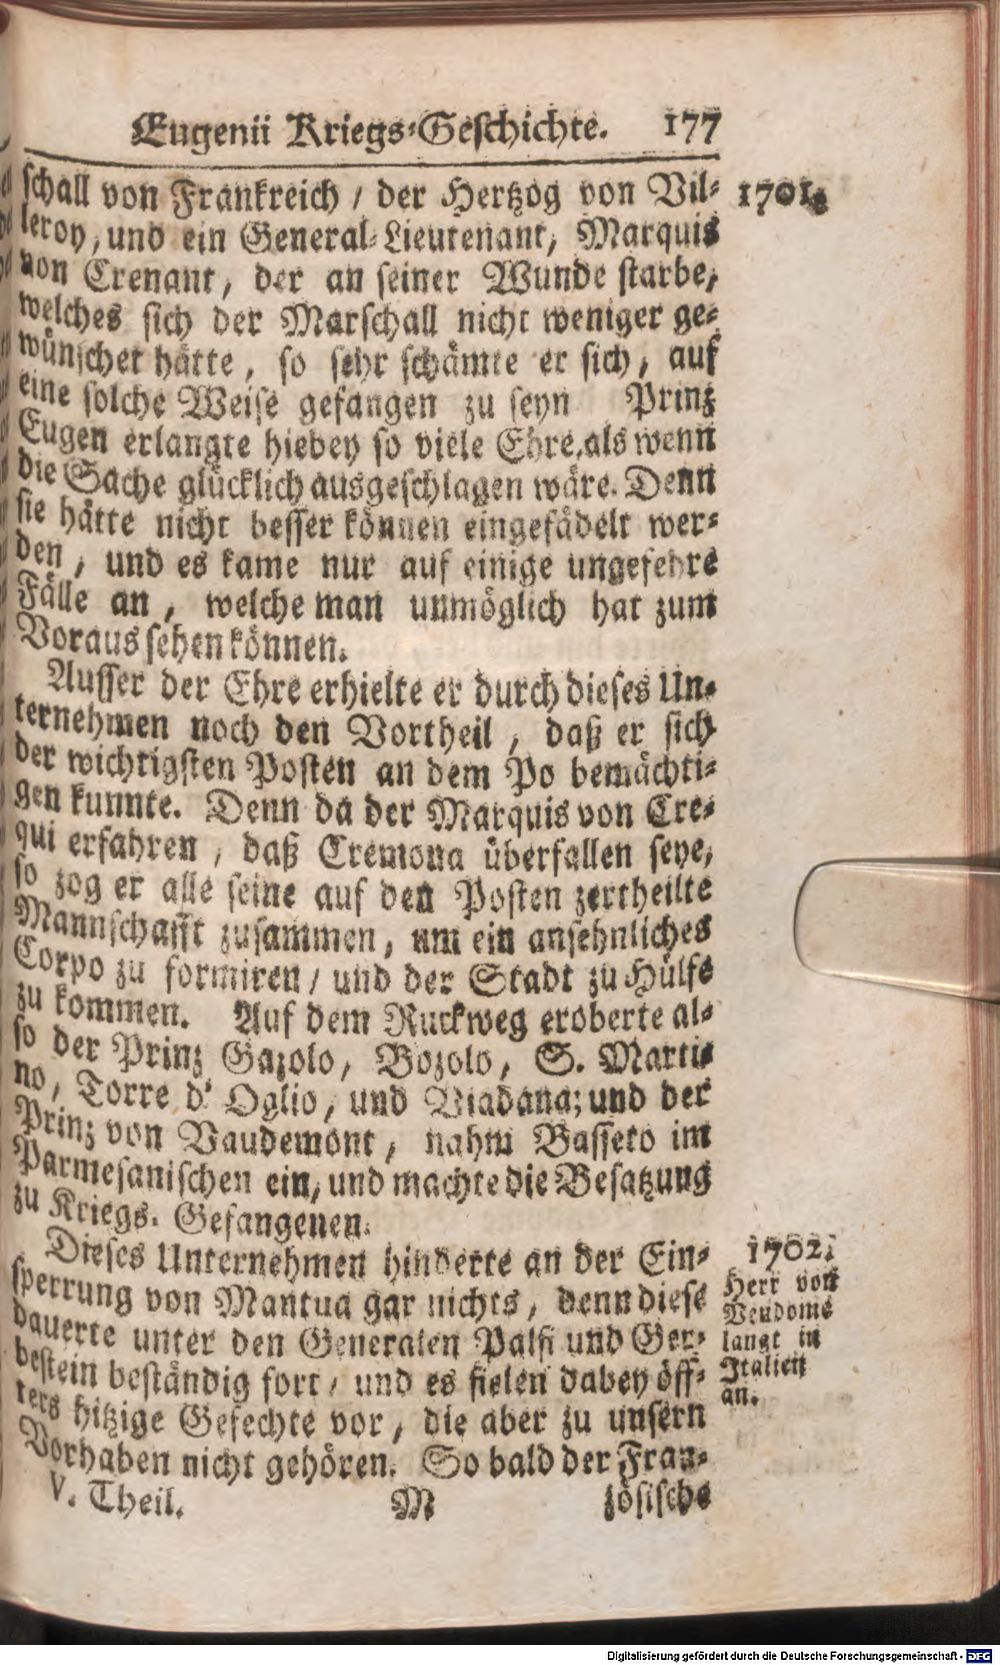 Eugenii Kriegs-Geschichte. 177
schall von Frankreich / der Hertzog von Vil-
1701.
leroy, und ein General-Lieutenant, Marquis
von Crenant, der an seiner Wunde starbe,
welches sich der Marschall nicht weniger ge-
wünschet hätte, so sehr schämte er sich, auf
eine solche Weise gefangen zu seyn Prinz
Eugen erlangte hiebey so viele Ehre, als wenn
die Sache glücklich ausgeschlagen wäre. Denn
sie hätte nicht besser können eingefädelt wer-
den, und es kame nur auf einige ungefehre
Fälle an, welche man unmöglich hat zum
Voraus sehen können.
Ausser der Ehre erhielte er durch dieses Un-
ternehmen noch den Vortheil, daß er sich
der wichtigsten Posten an dem Po bemächti-
gen kunnte. Denn da der Marquis von Cre-
qui erfahren, daß Cremona überfallen seye,
so zog er alle seine auf den Posten zertheilte
Mannschafft zusammen, um ein ansehnliches
Corpo zu formiren / und der Stadt zu Hülfe
zu kommen. Auf dem Ruckweg eroberte al-
so der Prinz Gazolo, Bozolo, S. Marti-
no, Torre d' Oglio, und Viadana; und der
Prinz von Vaudemont, nahm Basseto im
Parmesanischen ein, und machte die Besatzung
zu Kriegs-Gefangenen.
Dieses Unternehmen hinderte an der Ein-
sperrung von Mantua gar nichts, denn diese
dauerte unter den Generalen Palfi und Ger-
bestein beständig fort, und es fielen dabey öff-
ters hitzige Gefechte vor, die aber zu unsern
Vorhaben nicht gehören. So bald der Fran-
1702.
Herr von
Vendome
langt in
Italien
an.
V. Theil. M zösische
Digitalisierung gefördert durch die Deutsche Forschungsgemeinschaft - DFG